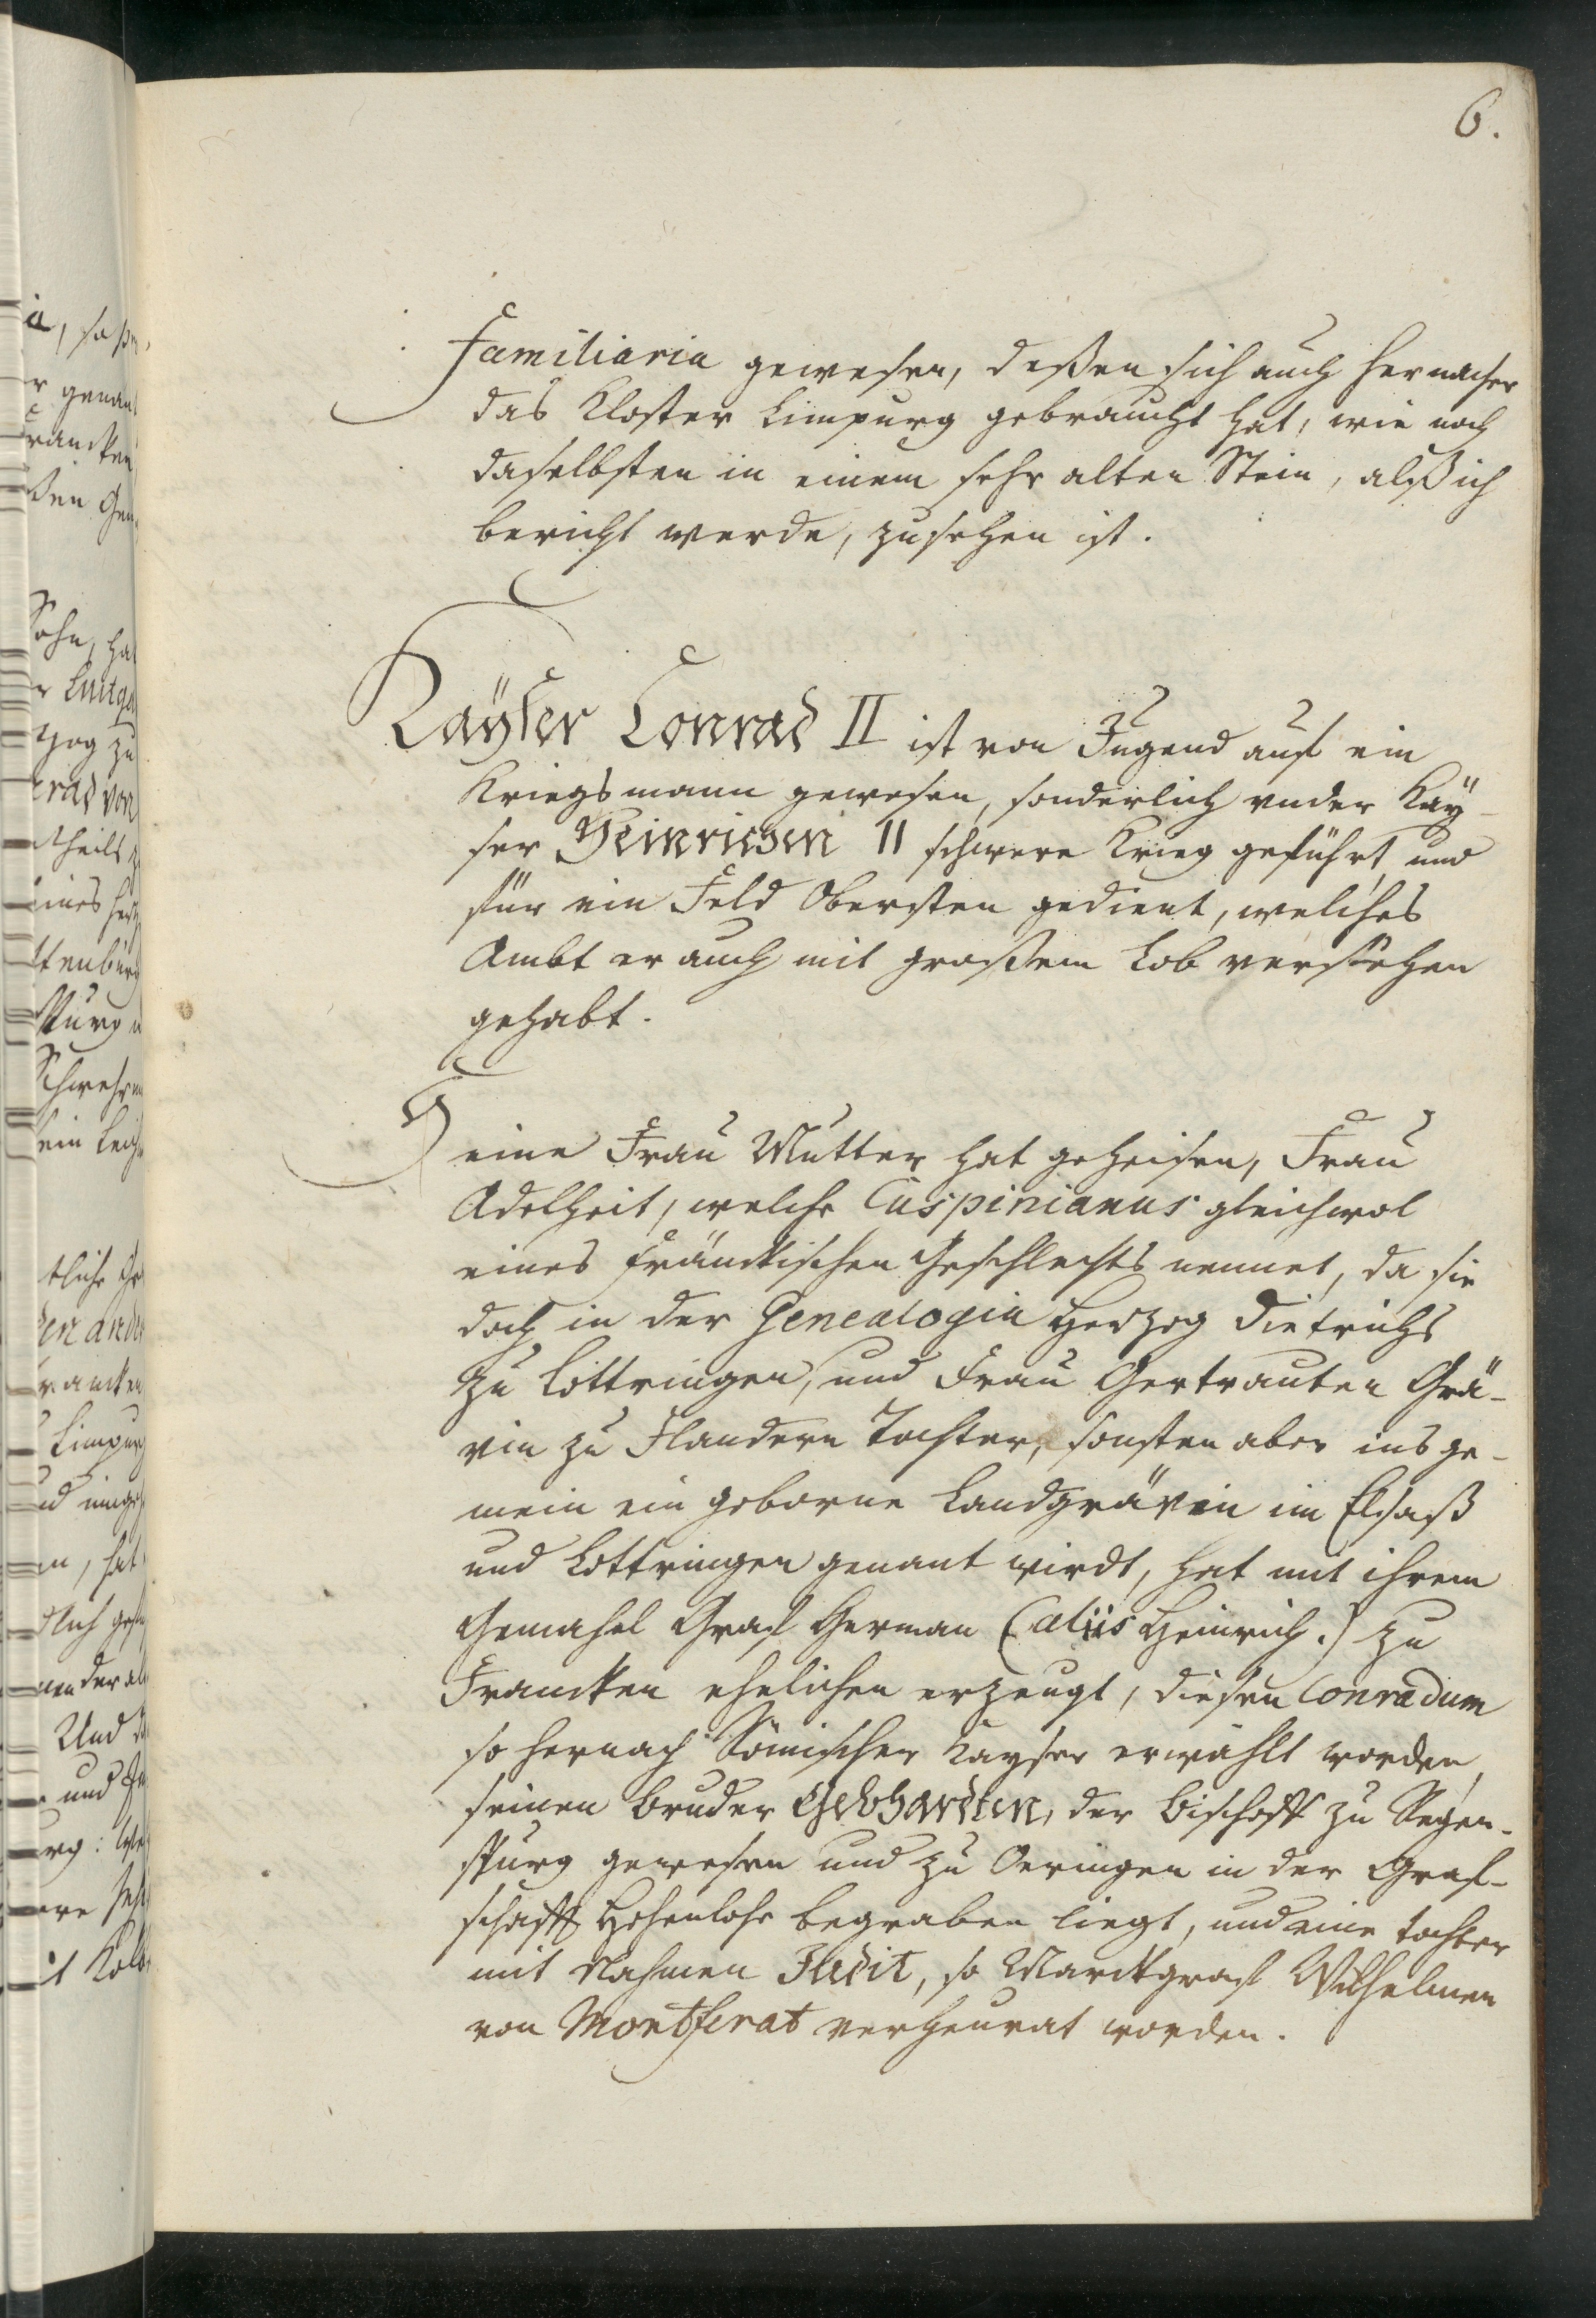 6.
Familiaria gewesen, deßen sich auch hernacher
das Kloster Limpurg gebraucht hat, wie noch
daselbsten in einem sehr alten Stein, alß ich
bericht werde, zusehen ist.
Kayser Conrad II ist von Jugend auf ein
Kriegsmann gewesen, sonderlich under Kaÿ-
ser Heinrichen II schwere Krieg geführt und
für ein Feld Obersten gedient, welches
Ambt er auch mit großem Lob versehen
gehabt.
Seine Frau Mutter hat geheisen, Frau
Adelheit, welche Cuspinianus gleichwol
eines Fränckischen Geschlechts nennet, da sie
doch in der Genealogia Herzog Dietrichs
zu Lottringen, und Frau Gertrauten Grä-
vin zu Flandern Tochter, sonsten aber ins ge-
mein ein geborne Landgrävin im Elsaß
und Lottringen genant wirdt, hat mit ihrem
Gemahel Graf Herman (aliis Heinrich.) zu
Francken ehelichen erzeugt, diesen Conradum
so hernach Römischer Kayser erwählt worden,
seinen Bruder Gebhardten, der Bischoff zu Regen-
spurg gewesen und zu Oeringen in der Graf-
schafft Hohenlohe begraben liegt, und eine Tochter
mit Nahmen Judit, so Marckgraf Wilhelmen
von Montferat verheurat worden.